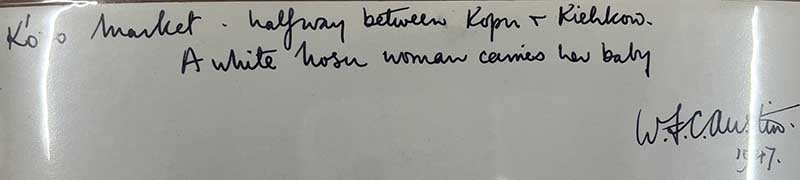 market. halfway between Kopu + Kiehkow.
A white Nosu woman carries her baby
W.F.C. Austin.
1947.